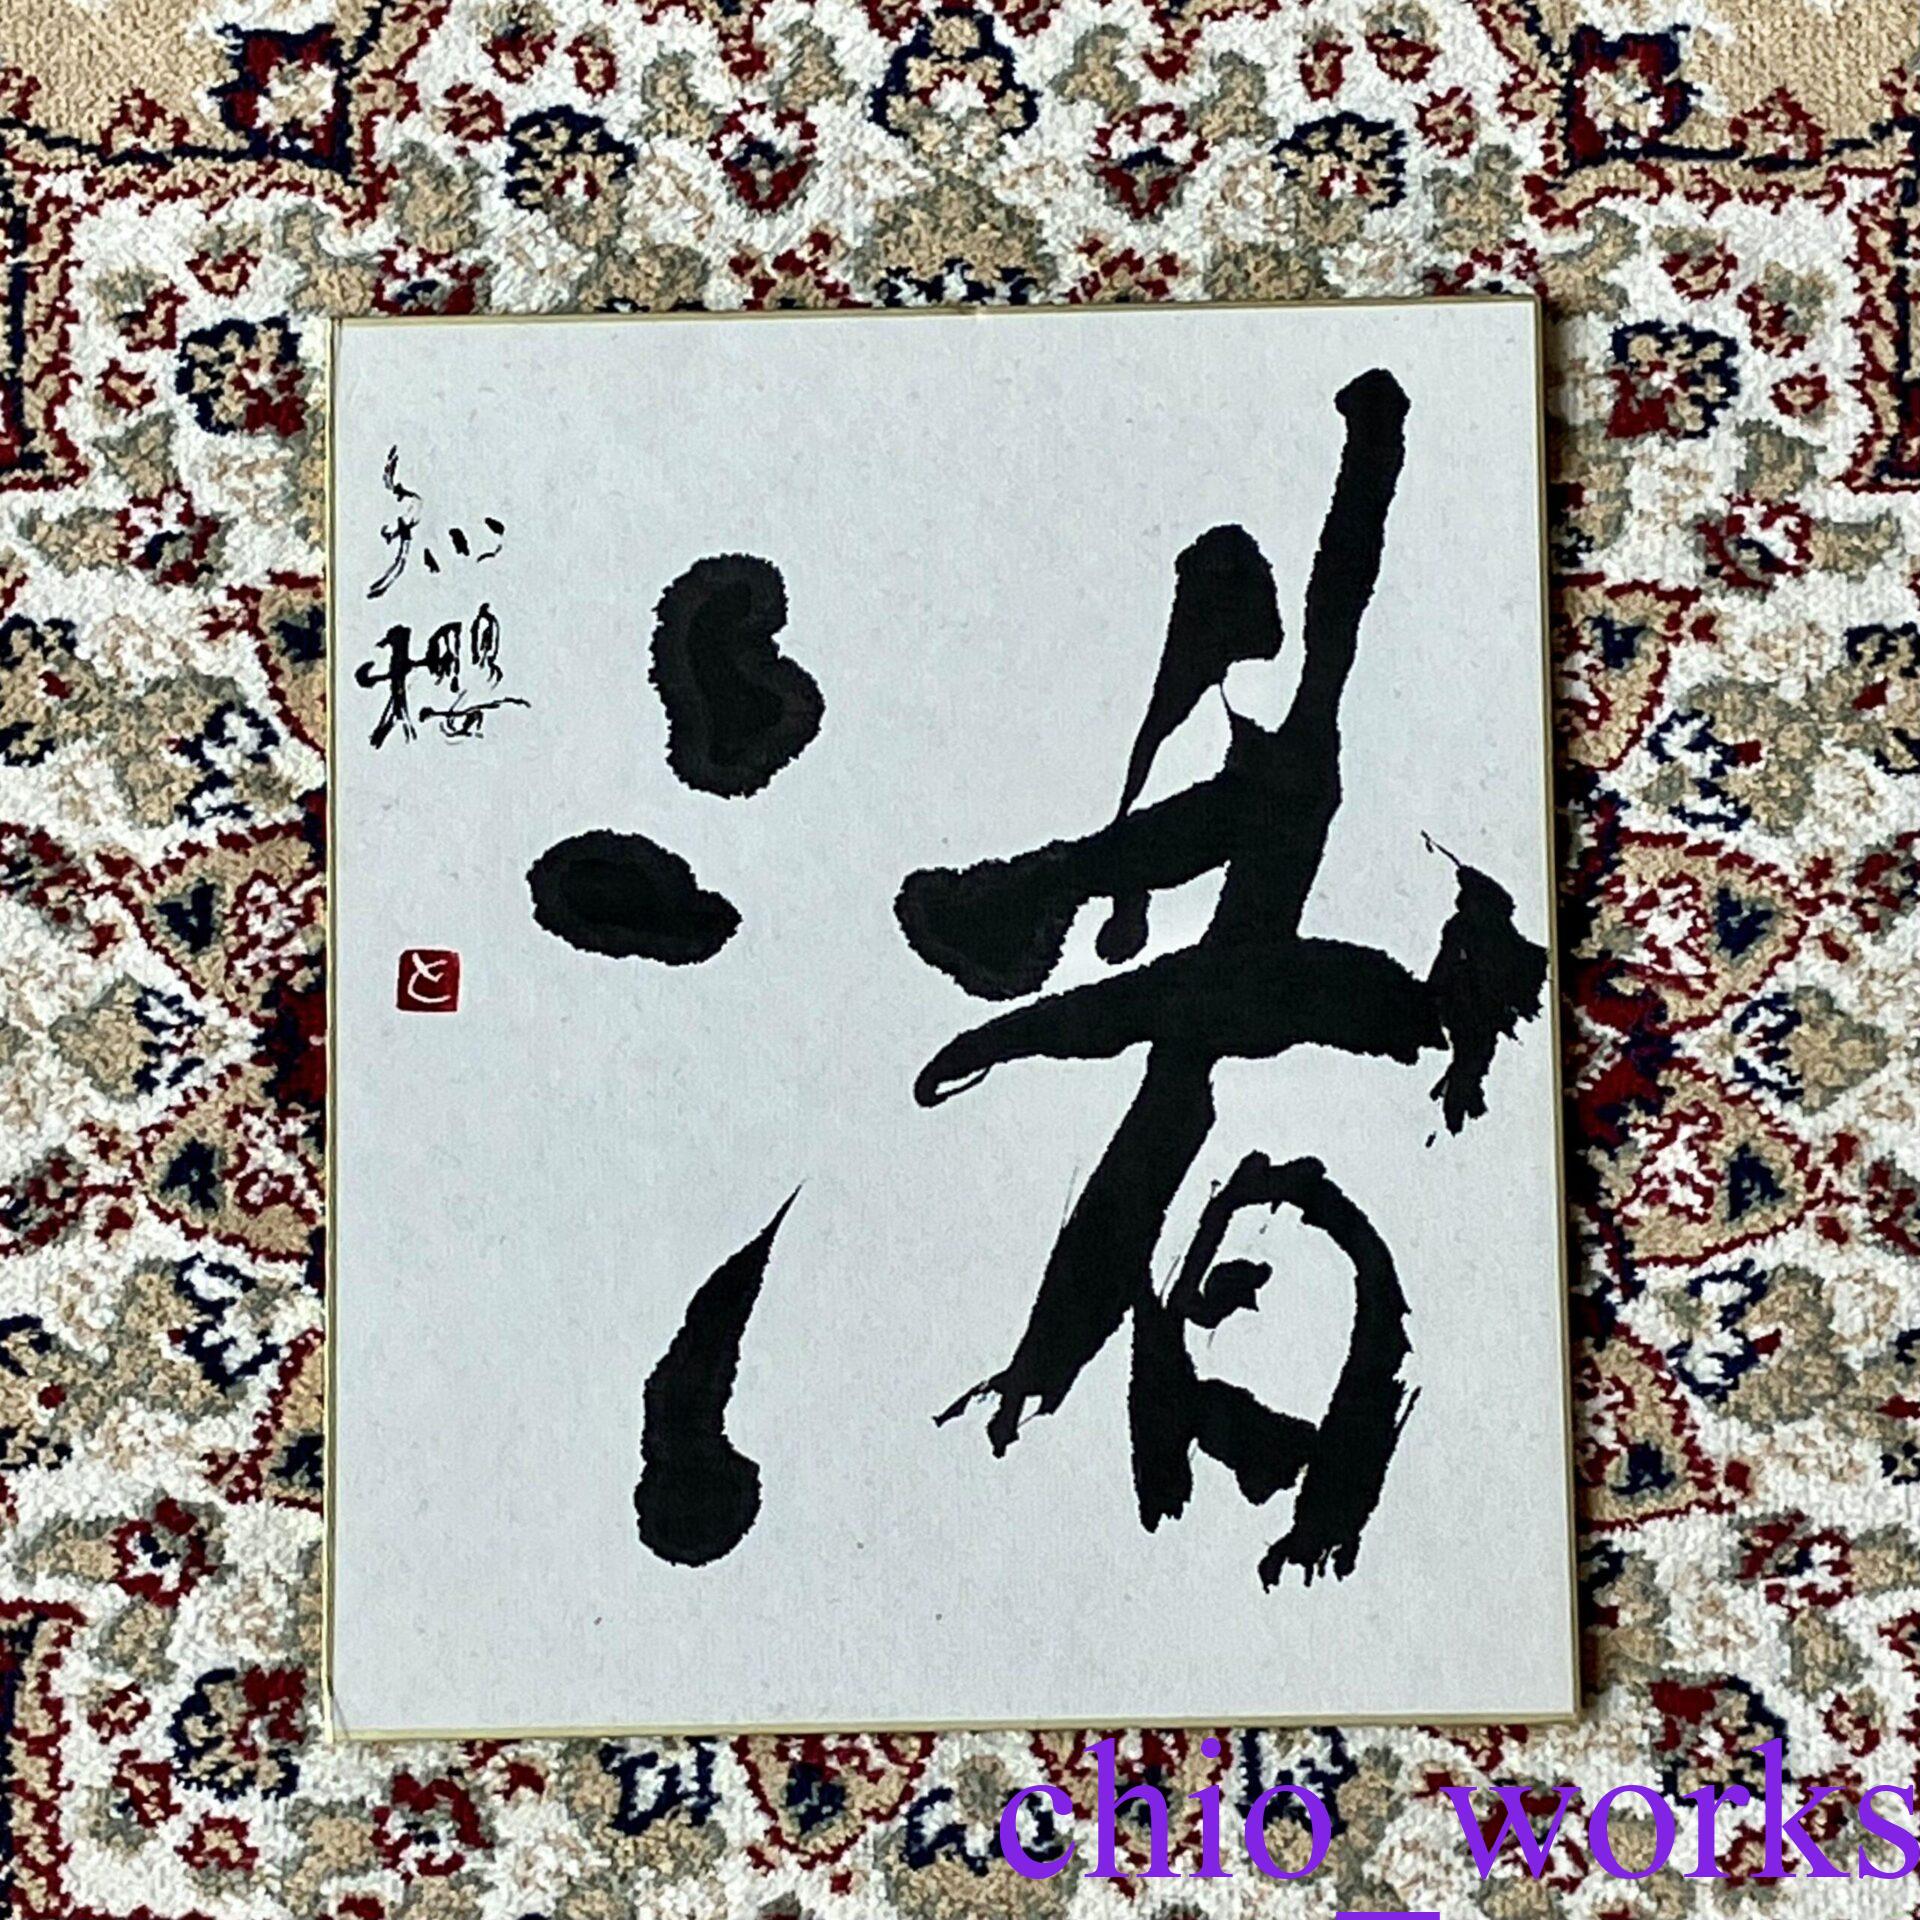 渚
知櫻
と
chio_works